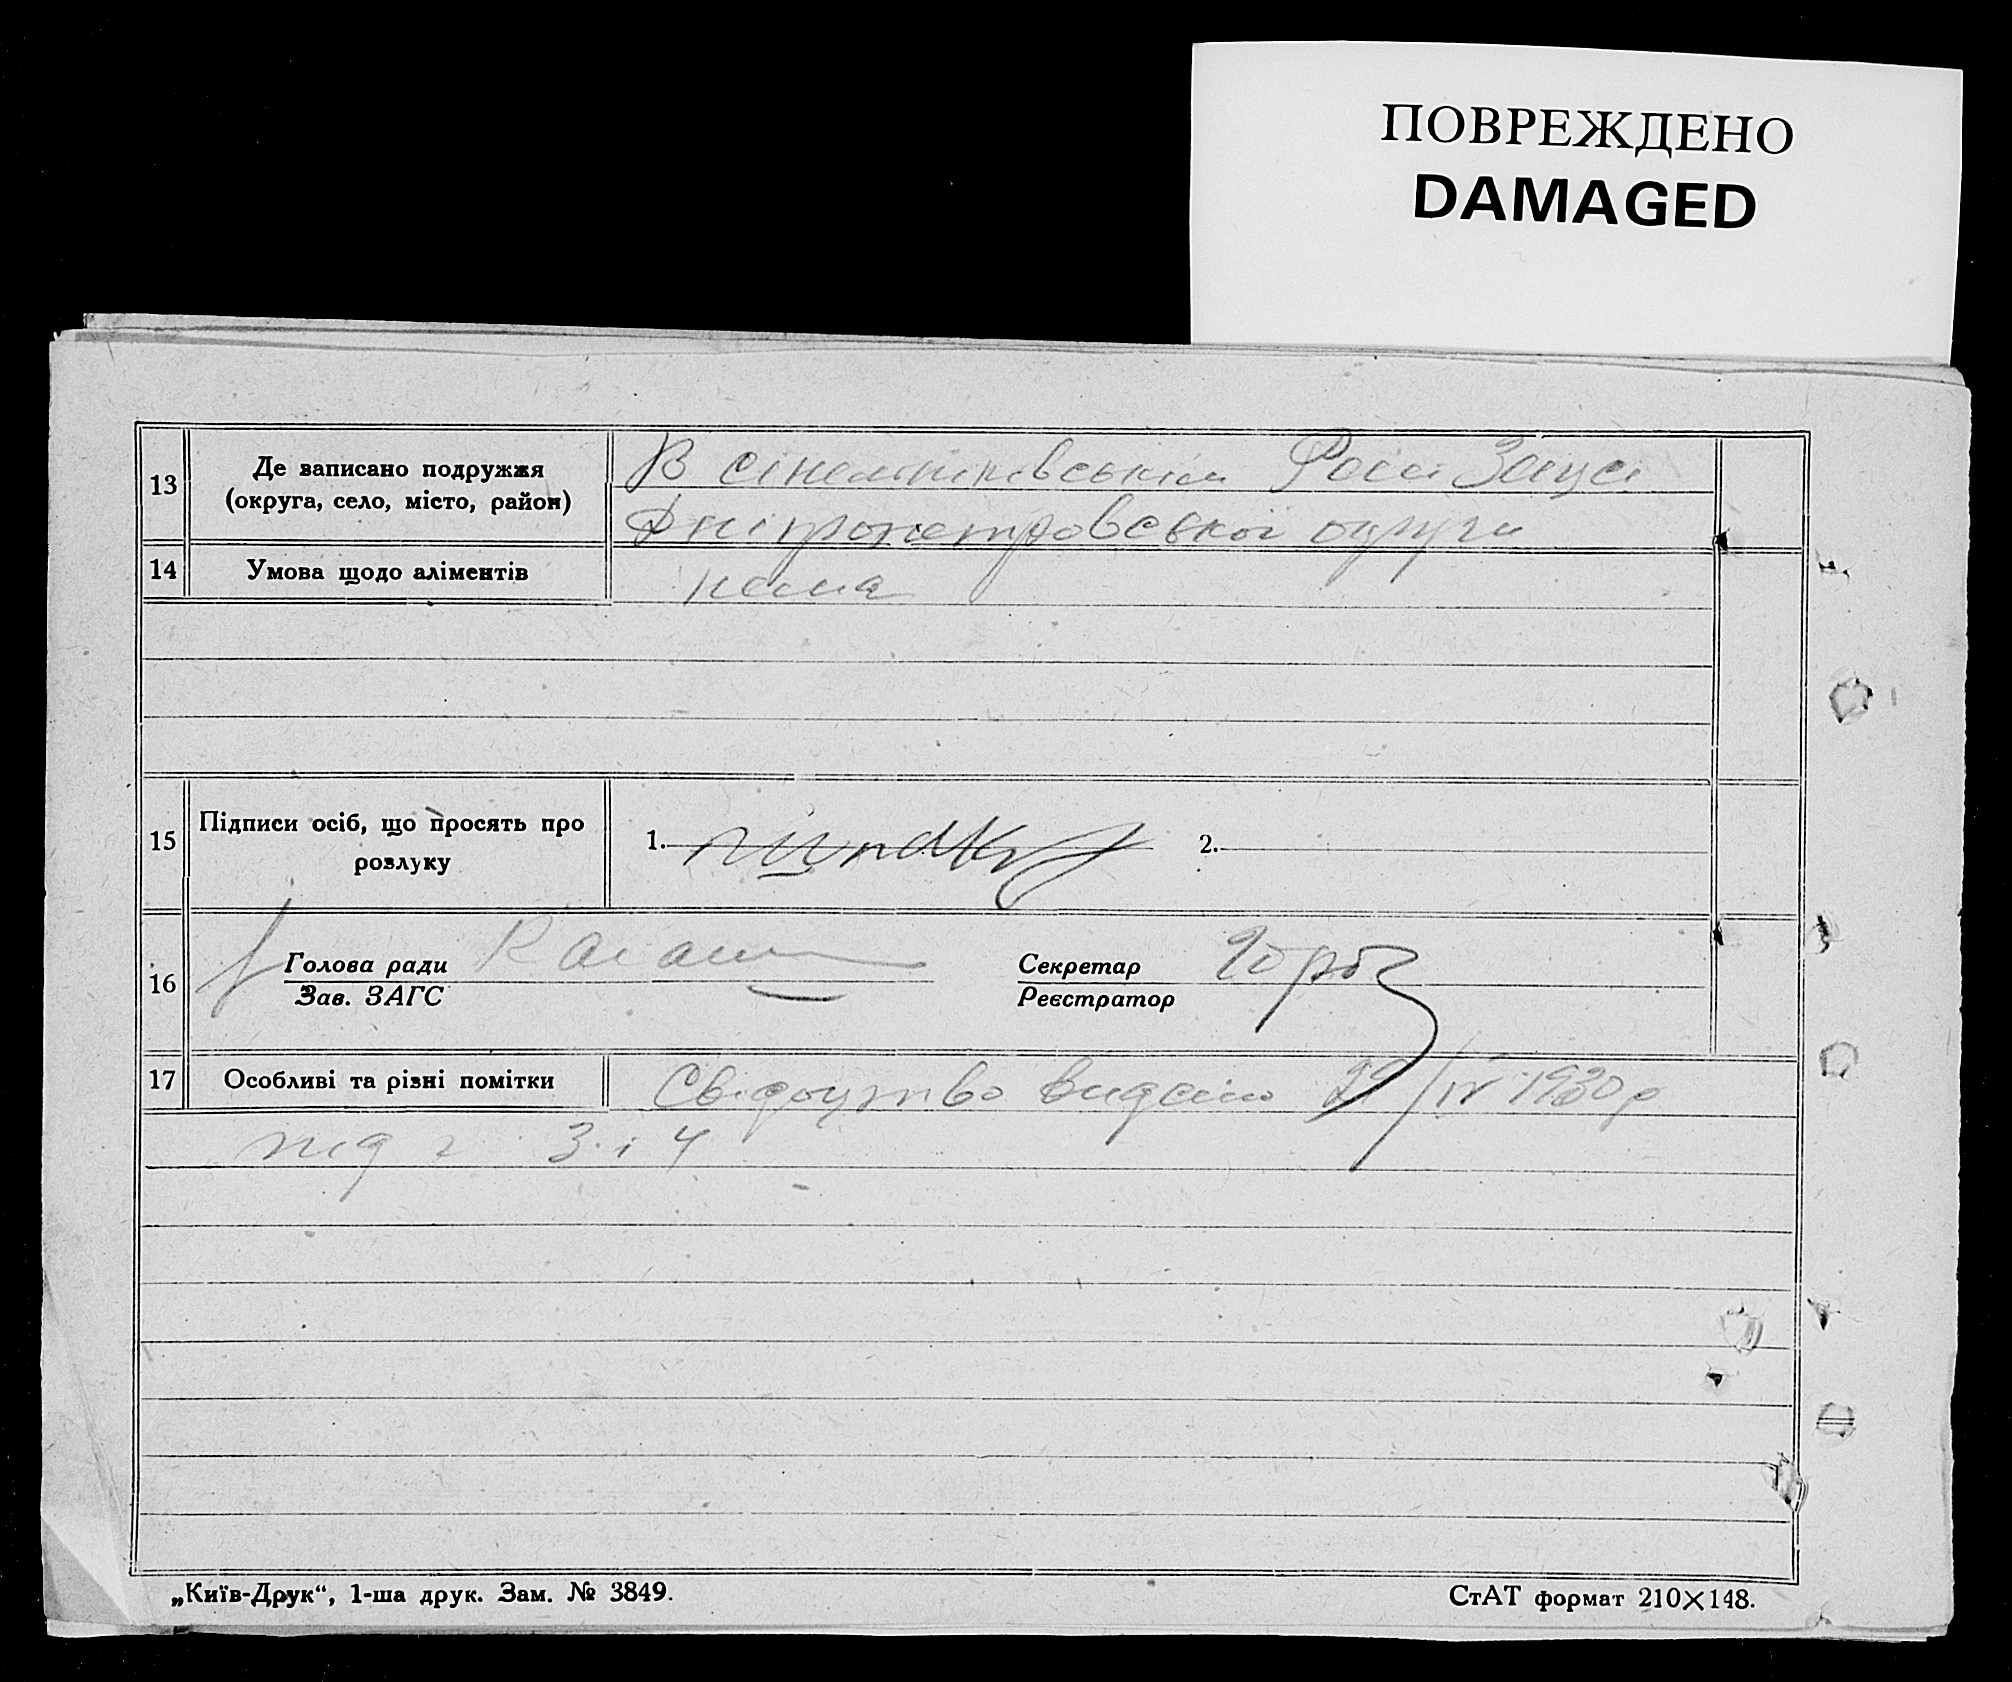 ПОВРЕЖДЕНО
DAMAGED
13 Де записано подружжя (округа, село, місто, район) В сінельниківськім Заґсі
Дніпропетровської округи
14 Умова щодо аліментів нема
15 Підписи осіб, що просять про розлуку 1. 2.
16 Голова ради Секретар
Зав. ЗАГС Реєстратор
17 Особливі та різні помітки Свідоцтво видано 29/IV 1930 р
під 3 і 4
„Київ-Друк“, 1-ша друк. Зам. № 3849. СтАТ формат 210×148.